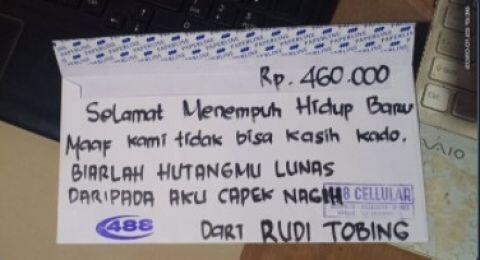 PAPERLINE PAPERLINE PAPERLINE PAPERLINE PAPERLINE
Rp. 460.000
Selamat Menempuh Hidup Baru
Maaf kami tidak bisa kasih kado.
BIARLAH HUTANGMU LUNAS
DARIPADA AKU CAPEK NAGIH
8 CELLULAR
488
DART RUDI TOBING
VAIO